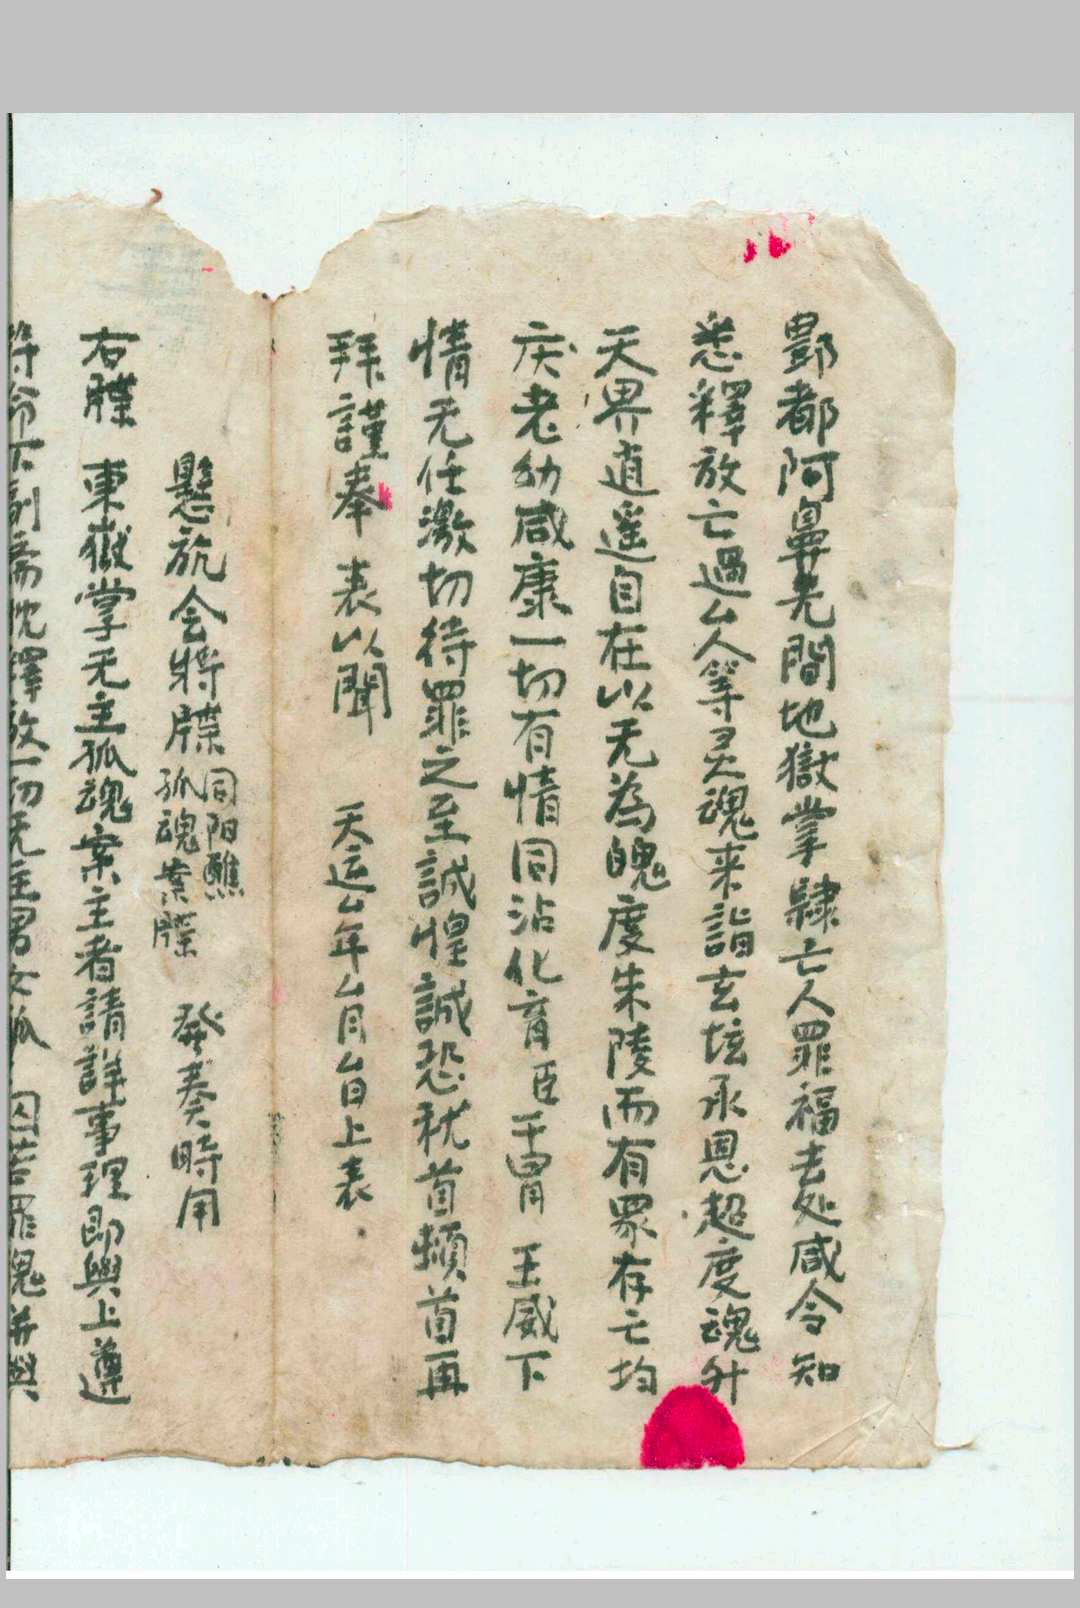 酆都阿鼻无間地獄掌隷亡人罪福去处咸令知
悉釋放亡過厶人等灵魂来詣玄坛承恩超度魂升
天界逍遥自在以无為魄度朱陵而有眾存亡均
庆老幼咸康一切有情同沾化育臣干冒 王威下
情无任激切待罪之至誠惶誠恐稽首頓首再
拜謹奉 表以聞 天运厶年厶月厶日上表
懸旛会將牒 同阳醮 孤魂案牒 發奏時用
右牒 東嶽掌无主孤魂案主者請詳事理即與上遵
符命下 釋放一切无主男女孤 囚苦罪魂并與